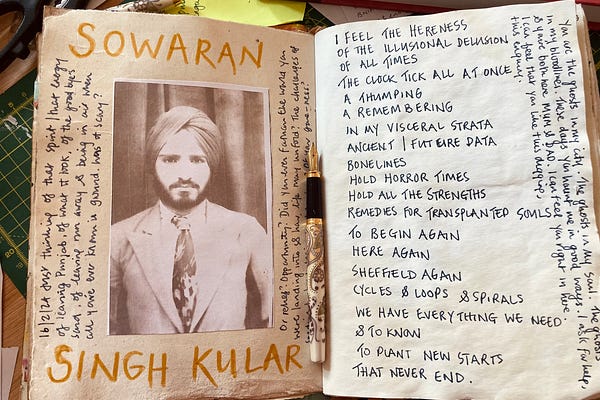 SOWARAN
16/2/24 Just thinking of that spirit / that energy
of leaving Punjab, of what it took, of the good byes
of leaving away & being in air when
all you've ever known is ground. Was it scary?
Or relief? Opportunity? Did you even fathom the world you
were landing into & how life may unfold? The challenges of
SINGH KULAR
I FEEL THE HERENESS
OF THE ILLUSIONAL DELUSION
OF ALL TIMES
THE CLOCK TICK ALL AT ONCE
A THUMPING
A REMEMBERING
IN MY VISCERAL STRATA
ANCIENT | FUTEIRE DATA
BONELINES
HOLD HORROR TIMES
HOLD ALL THE STRENGTHS
REMEDIES FOR TRANSPLANTED SOUILS
TO BEGIN AGAIN
HERE AGAIN
SHEFFIELD AGAIN
CYCLES & LOOPS & SPIRALS
WE HAVE EVERYTHING WE NEED
& TO KNOW
TO PLANT NEW STARTS
THAT NEVER END.
You are the ghosts in my city. The ghosts in my soul. The ghosts
in my bloodlines. These days you haunt me in good ways. I ask for help
& you are both near, Mum & Dad. I can feel you right in here.
I can feel that you like this digging,
this enquiry.